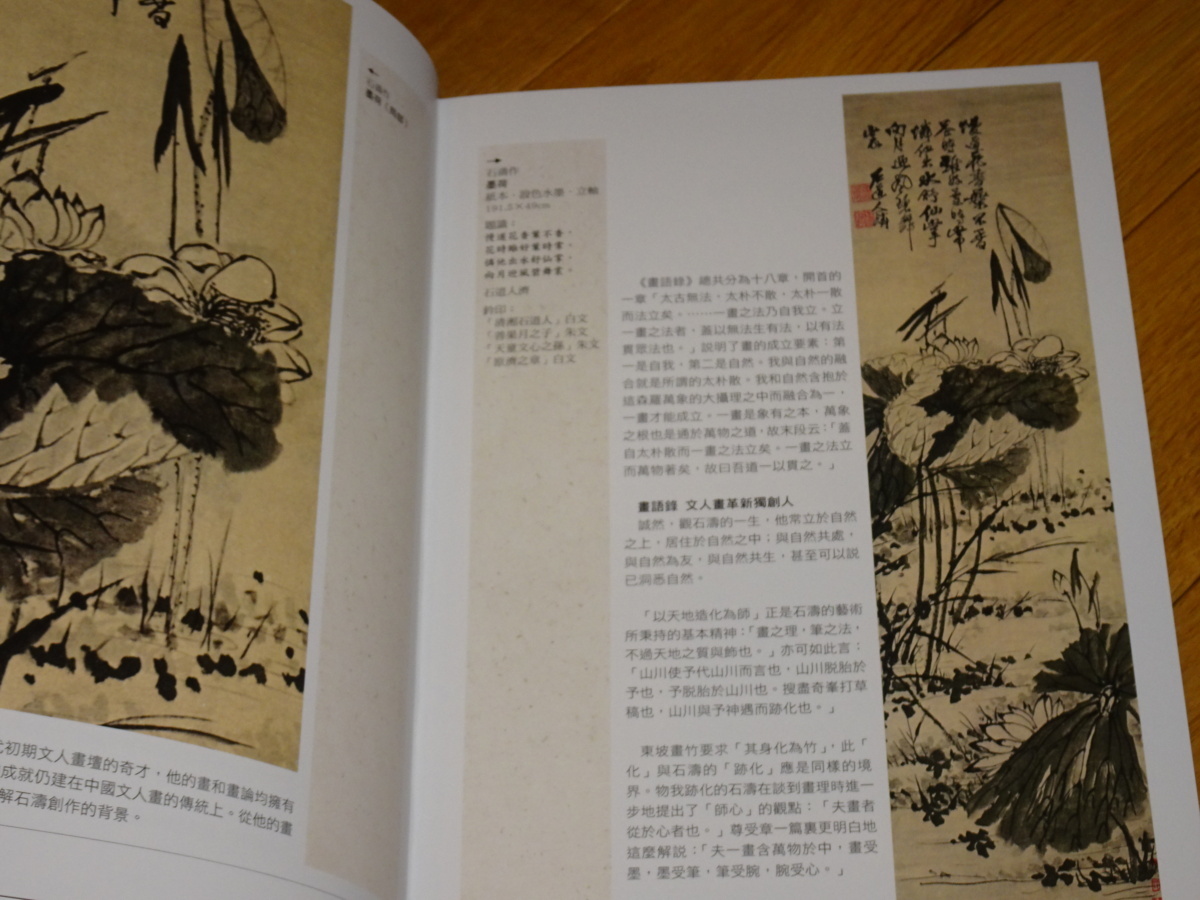 石濤作
墨荷
紙本．設色水墨．立軸
191.5×49cm
題識：
石道人濟
鈐印：
「清湘石道人」白文
「善果月之子」朱文
「天童文心之孫」朱文
「原濟之章」白文
《畫語錄》總共分為十八章，開首的
一章「太古無法，太朴不散，太朴一散
而法立矣。……一畫之法乃自我立。立
一畫之法者，蓋以無法生有法，以有法
貫眾法也。」說明了畫的成立要素：第
一是自我，第二是自然。我與自然的融
合就是所謂的太朴散。我和自然含抱於
這森羅萬象的大攝理之中而融合為一，
一畫才能成立。一畫是象有之本，萬象
之根也是通於萬物之道，故末段云：「蓋
自太朴散而一畫之法立矣。一畫之法立
而萬物著矣，故曰吾道一以貫之。」
畫語錄 文人畫革新獨創人
誠然，觀石濤的一生，他常立於自然
之上，居住於自然之中；與自然共處，
與自然為友，與自然共生，甚至可以說
已洞悉自然。
「以天地造化為師」正是石濤的藝術
所秉持的基本精神：「畫之理，筆之法，
不過天地之質與飾也。」亦可如此言：
「山川使予代山川而言也，山川脫胎於
予也，予脫胎於山川也。搜盡奇峯打草
稿也，山川與予神遇而跡化也。」
東坡畫竹要求「其身化為竹」，此「
化」與石濤的「跡化」應是同樣的境
界。物我跡化的石濤在談到畫理時進一
步地提出了「師心」的觀點：「夫畫者
從於心者也。」尊受章一篇裏更明白地
這麼解說：「夫一畫含萬物於中，畫受
墨，墨受筆，筆受腕，腕受心。」
初期文人畫壇的奇才，他的畫和畫論均擁有
成就仍建在中國文人畫的傳統上。從他的畫
解石濤創作的背景。